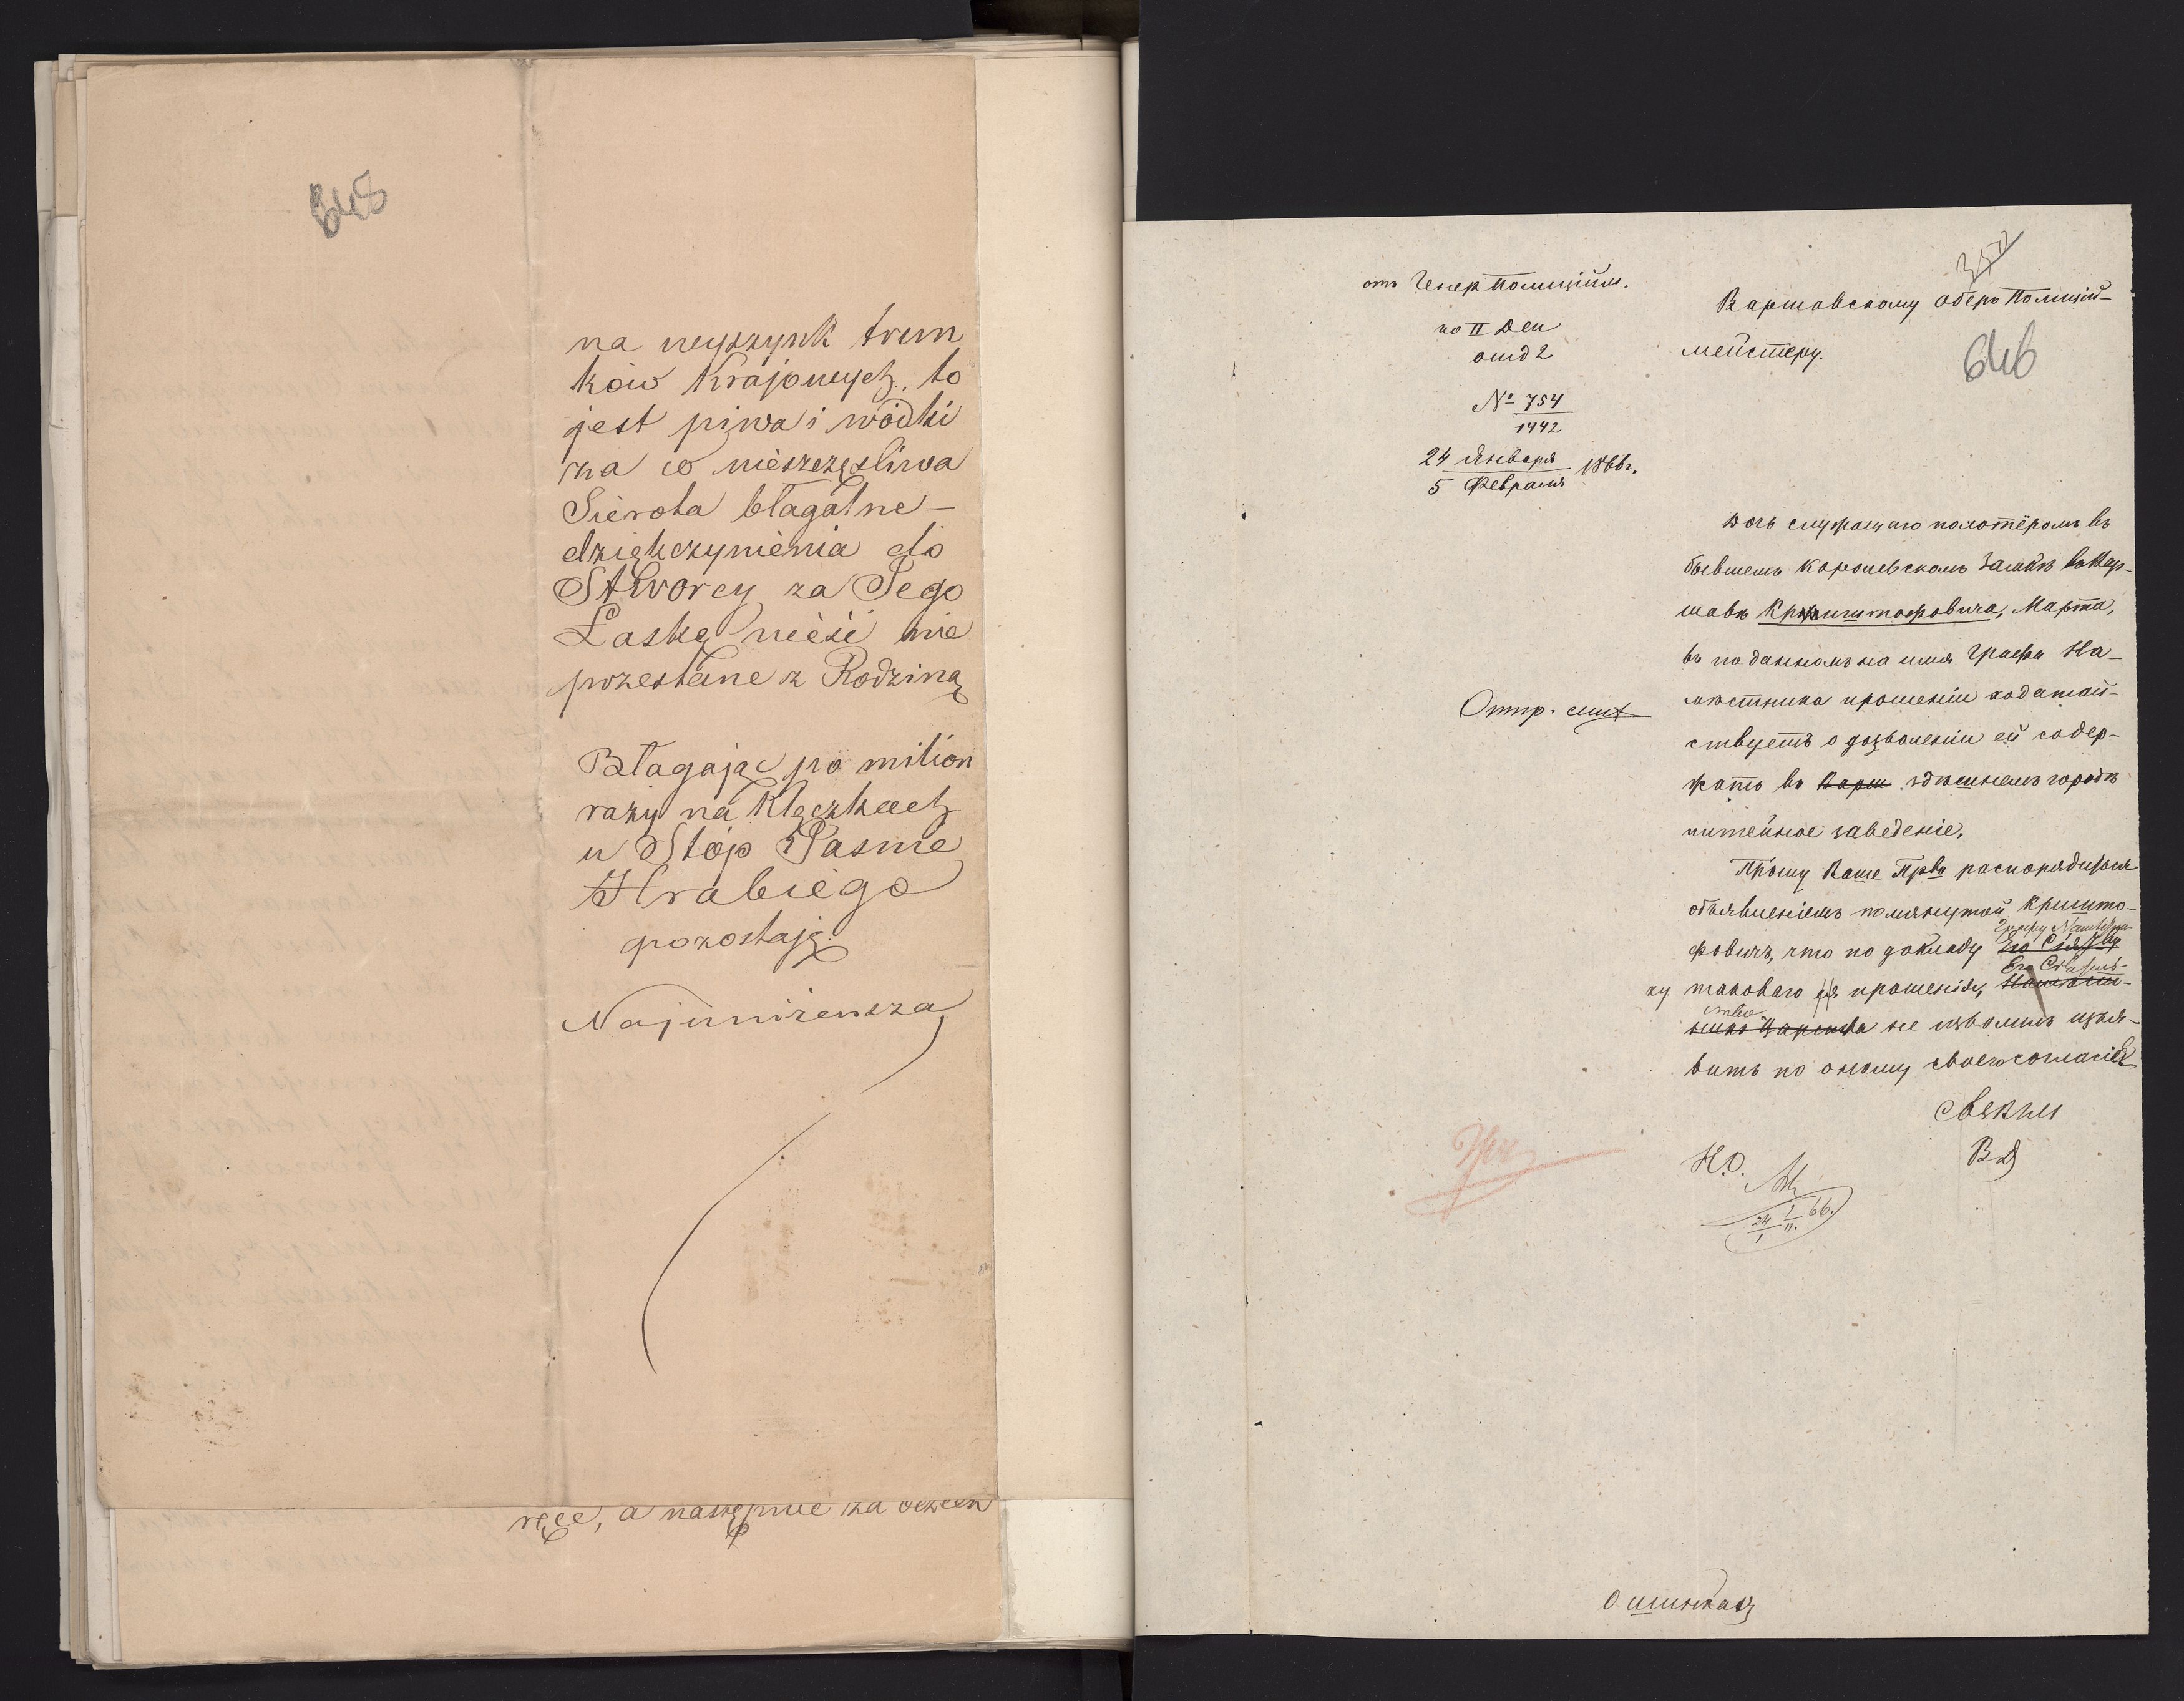 648
na wyszynk trun
ków Krajowych, to
jest piwa i wódki
za co nieszczęsliwa
Sierota błagalne –
dziękczynienia do
Stworcy za Jego
Łaskę nieść nie
przestane z Rodziną
Błagając po milion
razy na Klęczkach
u Stóp Jasnie
Hrabiego
pozostaję
Najuniżensza
ręce, a następnie za
отъ Генер Полиційм.
по II Дел
отд 2
№ 754
1442
24 Января
5 Февраля 1866 г.
Отпр.
Варшавскому Оберъ Полицій–
мейстеру.
646
Дочь служащаго полотёромъ въ
бывшемъ Королевскомъ Замкѣ въ Вар–
шавѣ Криштофовича, Марта,
въ поданномъ на имя Графа На–
мѣстника прошеніи ходатай–
ствуетъ о дозволеніи ей содер–
жать въ Варш здѣшнемъ городѣ
питейное заведеніе.
Прошу Ваше Прво распорядиться
объявленіемъ помянутой Кришто–
Графу Намѣстни–
фовичъ, что по докладу Его Сіят–ву
Его Сіятель–
ку таковаго ея прошенія, Намѣстн–
ство
никъ Царства не изволилъ изъя–
вить по оному своего согласія
Н.О.
В Д
24/I 66.
О шинкахъ